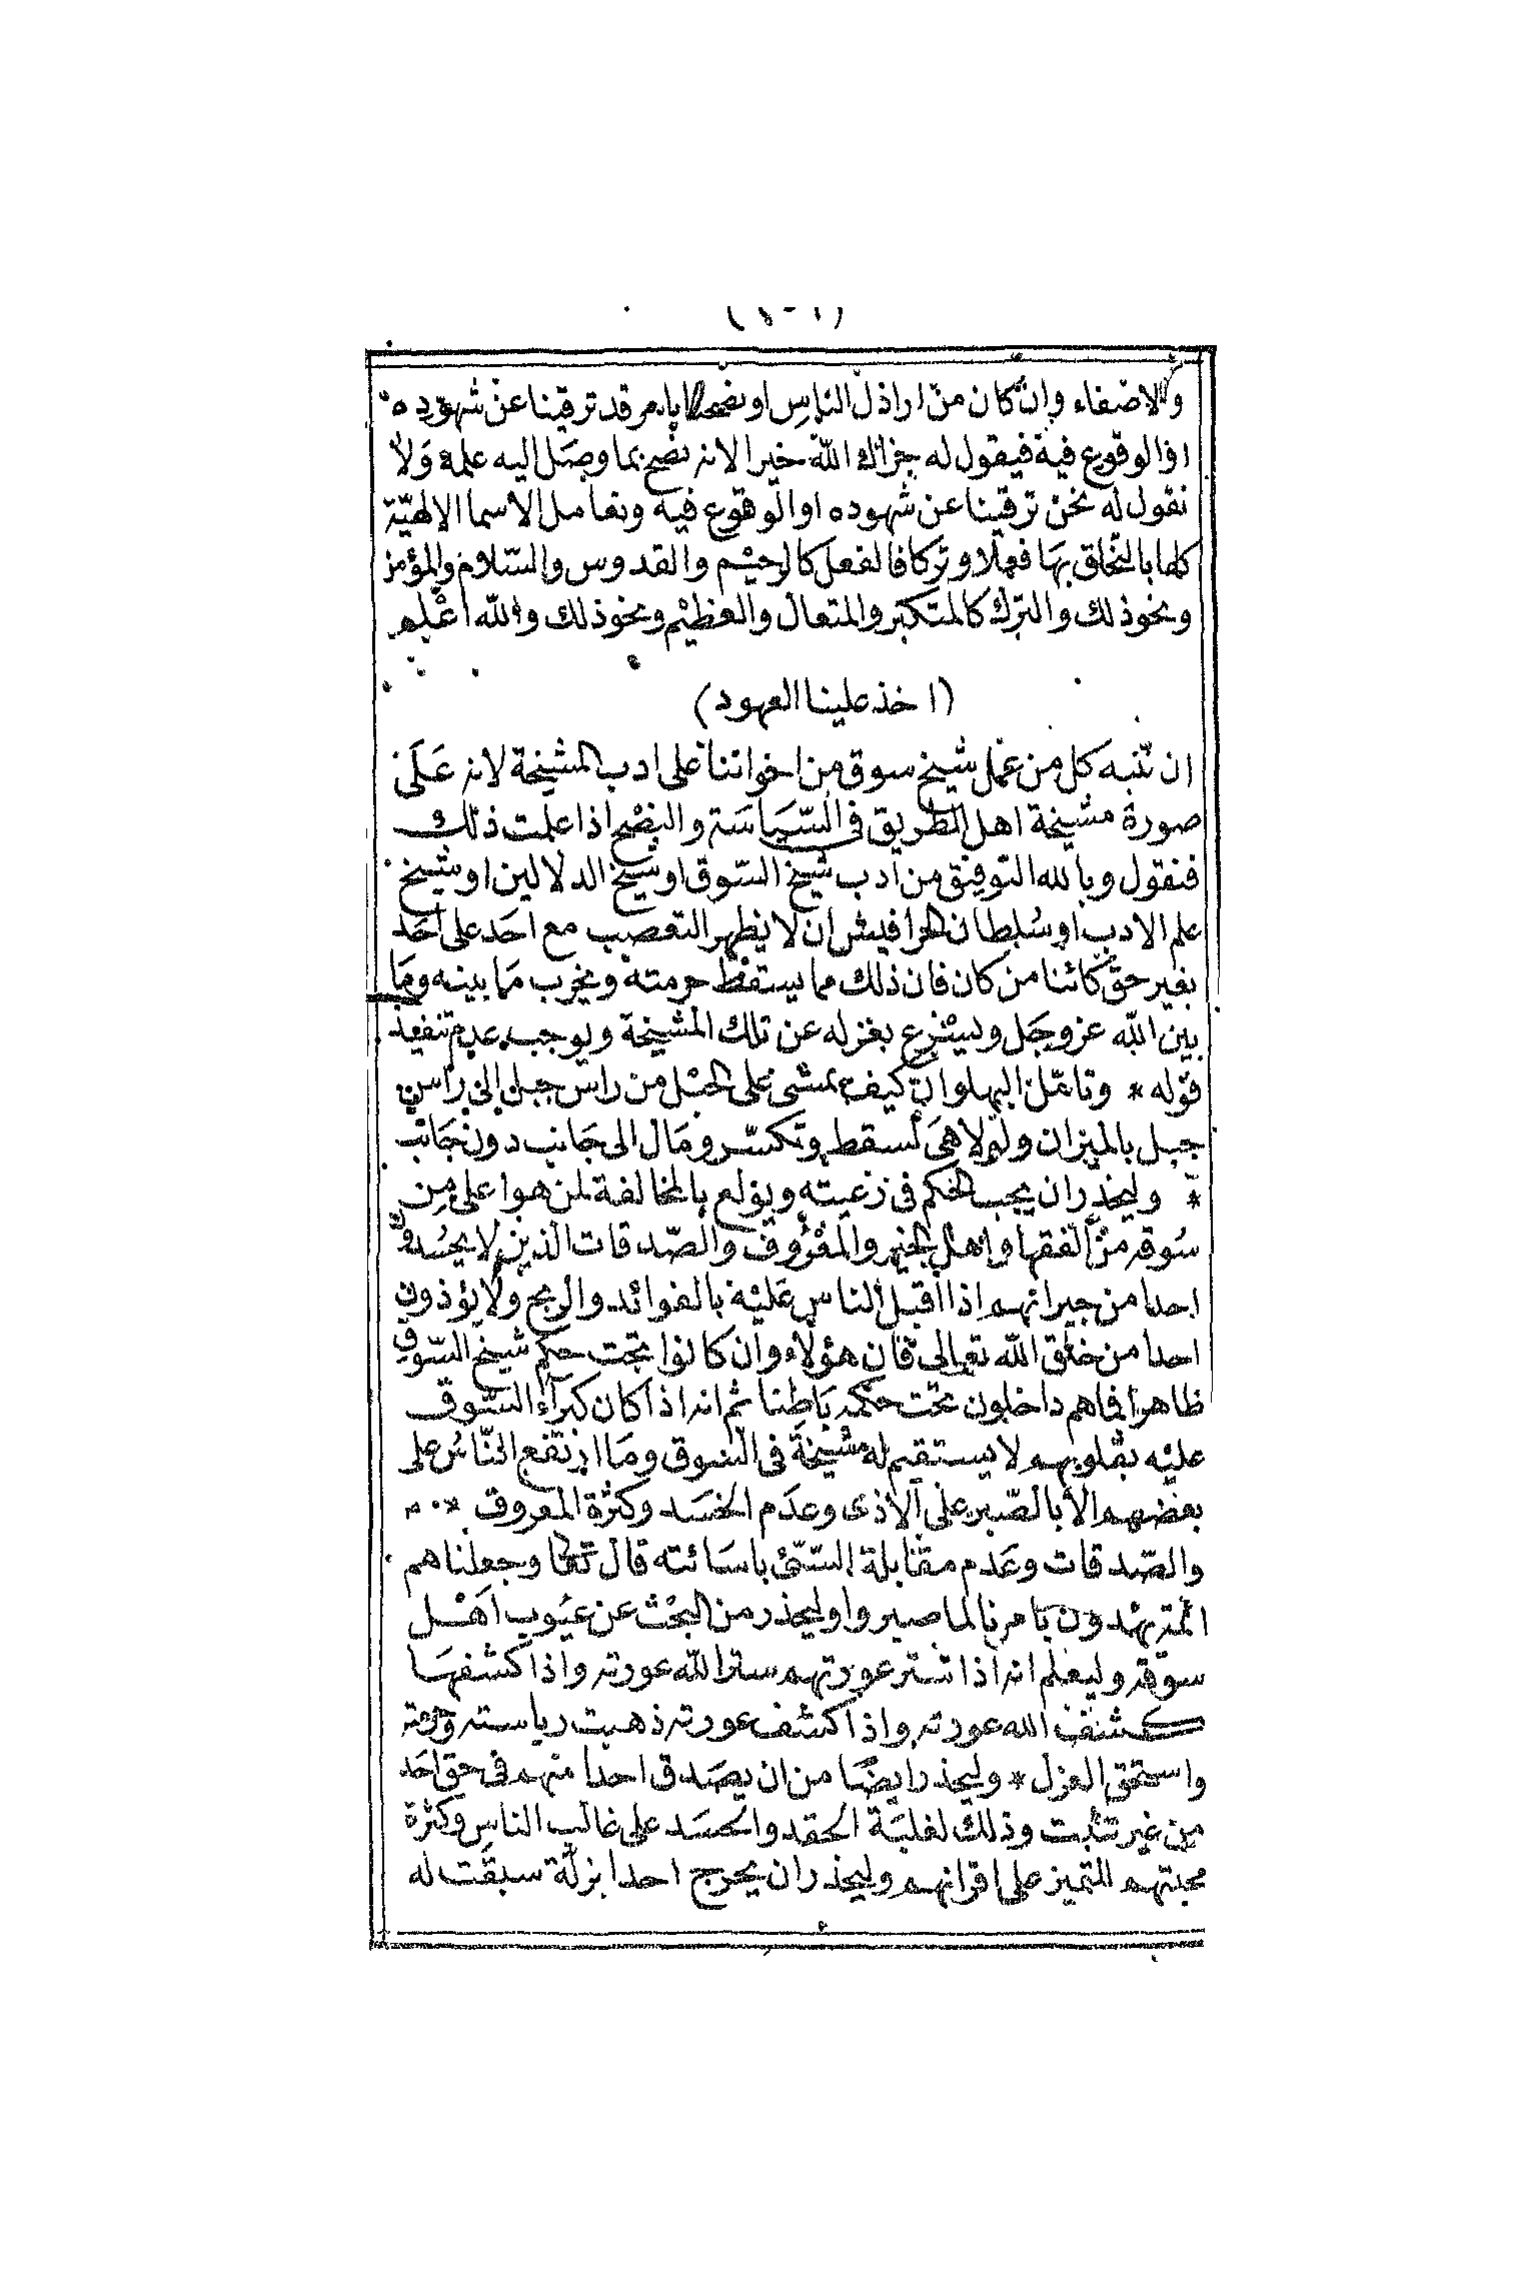 والاصغاء وان كان من اراذل الناس او نصحنا بامر قد ترقينا عن شهوده
او الوقوع فيه فيقول له جزاك الله خيرا لانه نصح بما وصل اليه علمه ولا
نقول له نحن ترقينا عن شهوده او الوقوع فيه ونعامل الاسما الالهيّة
كلها بالتخلق بها فعلا وتركا فالفعل كالرحيم والقدوس والسّلام والمؤمن
ونحو ذلك والترك كالمتكبر والمتعال والعظيم ونحو ذلك والله اعلم
(اخذ علينا العهود)
ان ننبه كل من عمل شيخ سوق من اخواننا على ادب المشيخة لانه على
صورة مشيخة اهل الطريق في السّياسة والنصح اذا علمت ذلك
فنقول وبالله التوفيق من ادب شيخ السّوق او شيخ الدلالين او شيخ
علم الادب او سلطان الحرافيش ان لا يظهر التعصب مع احد على احد
بغير حق كائنا من كان فان ذلك مما يسقط حرمته ويخرب ما بينه وما
بين الله عز وجل ويسرع بعزله عن تلك المشيخة ويوجب عدم تنفيد
قوله * وتامّل البهلوان كيف يمشى على الحبل من راس جبل الى راس
جبل بالميزان ولولا هى لسقط وتكسّر ومال الى جانب دون جانب
* وليحذر ان يجب الحكم فى رعيته ويولع بالمخالفة لمن هو اعلى من
سوقه من الفقها واهل الخير والمعروف والصّدقات الذين لا يحسدون
احدا من جيرانهم اذا اقبل الناس عليه بالفوائد والربح ولا يؤذون
احدا من خلق الله تعالى فان هؤلاء وان كانوا تحت حكم شيخ السّوق
ظاهرا فماهم داخلون تحت حكمه باطنا ثم انه اذا كان كبراء السّوق
عليه بقلوبهم لا يستقيم له مشيخة فى السوق وما ارتفع النّاس على
بعضهم الا بالصّبر على الاذى وعدم الحسد وكثرة المعروف *
والصّدقات وعدم مقابلة السّئ باسائته قال تعالى وجعلناهم
ائمة يهدون بامرنا لما صبروا وليحذر من البحث عن عيوب اهل
سوقه وليعلم انه اذا ستر عورتهم ستر الله عورته واذا كشفها
كشف الله عورته واذا كشف عورته ذهبت رياسته وحرمته
واستحق العزل * وليحذر ايضا من ان يصدق احدا منهم فى حق احد
من غير تثبت وذلك لغلبة الحقد والحسد على غالب الناس وكثرة
محبتهم للتميز على اقرانهم وليحذر ان يحرج احدا بزلّة سبقت له